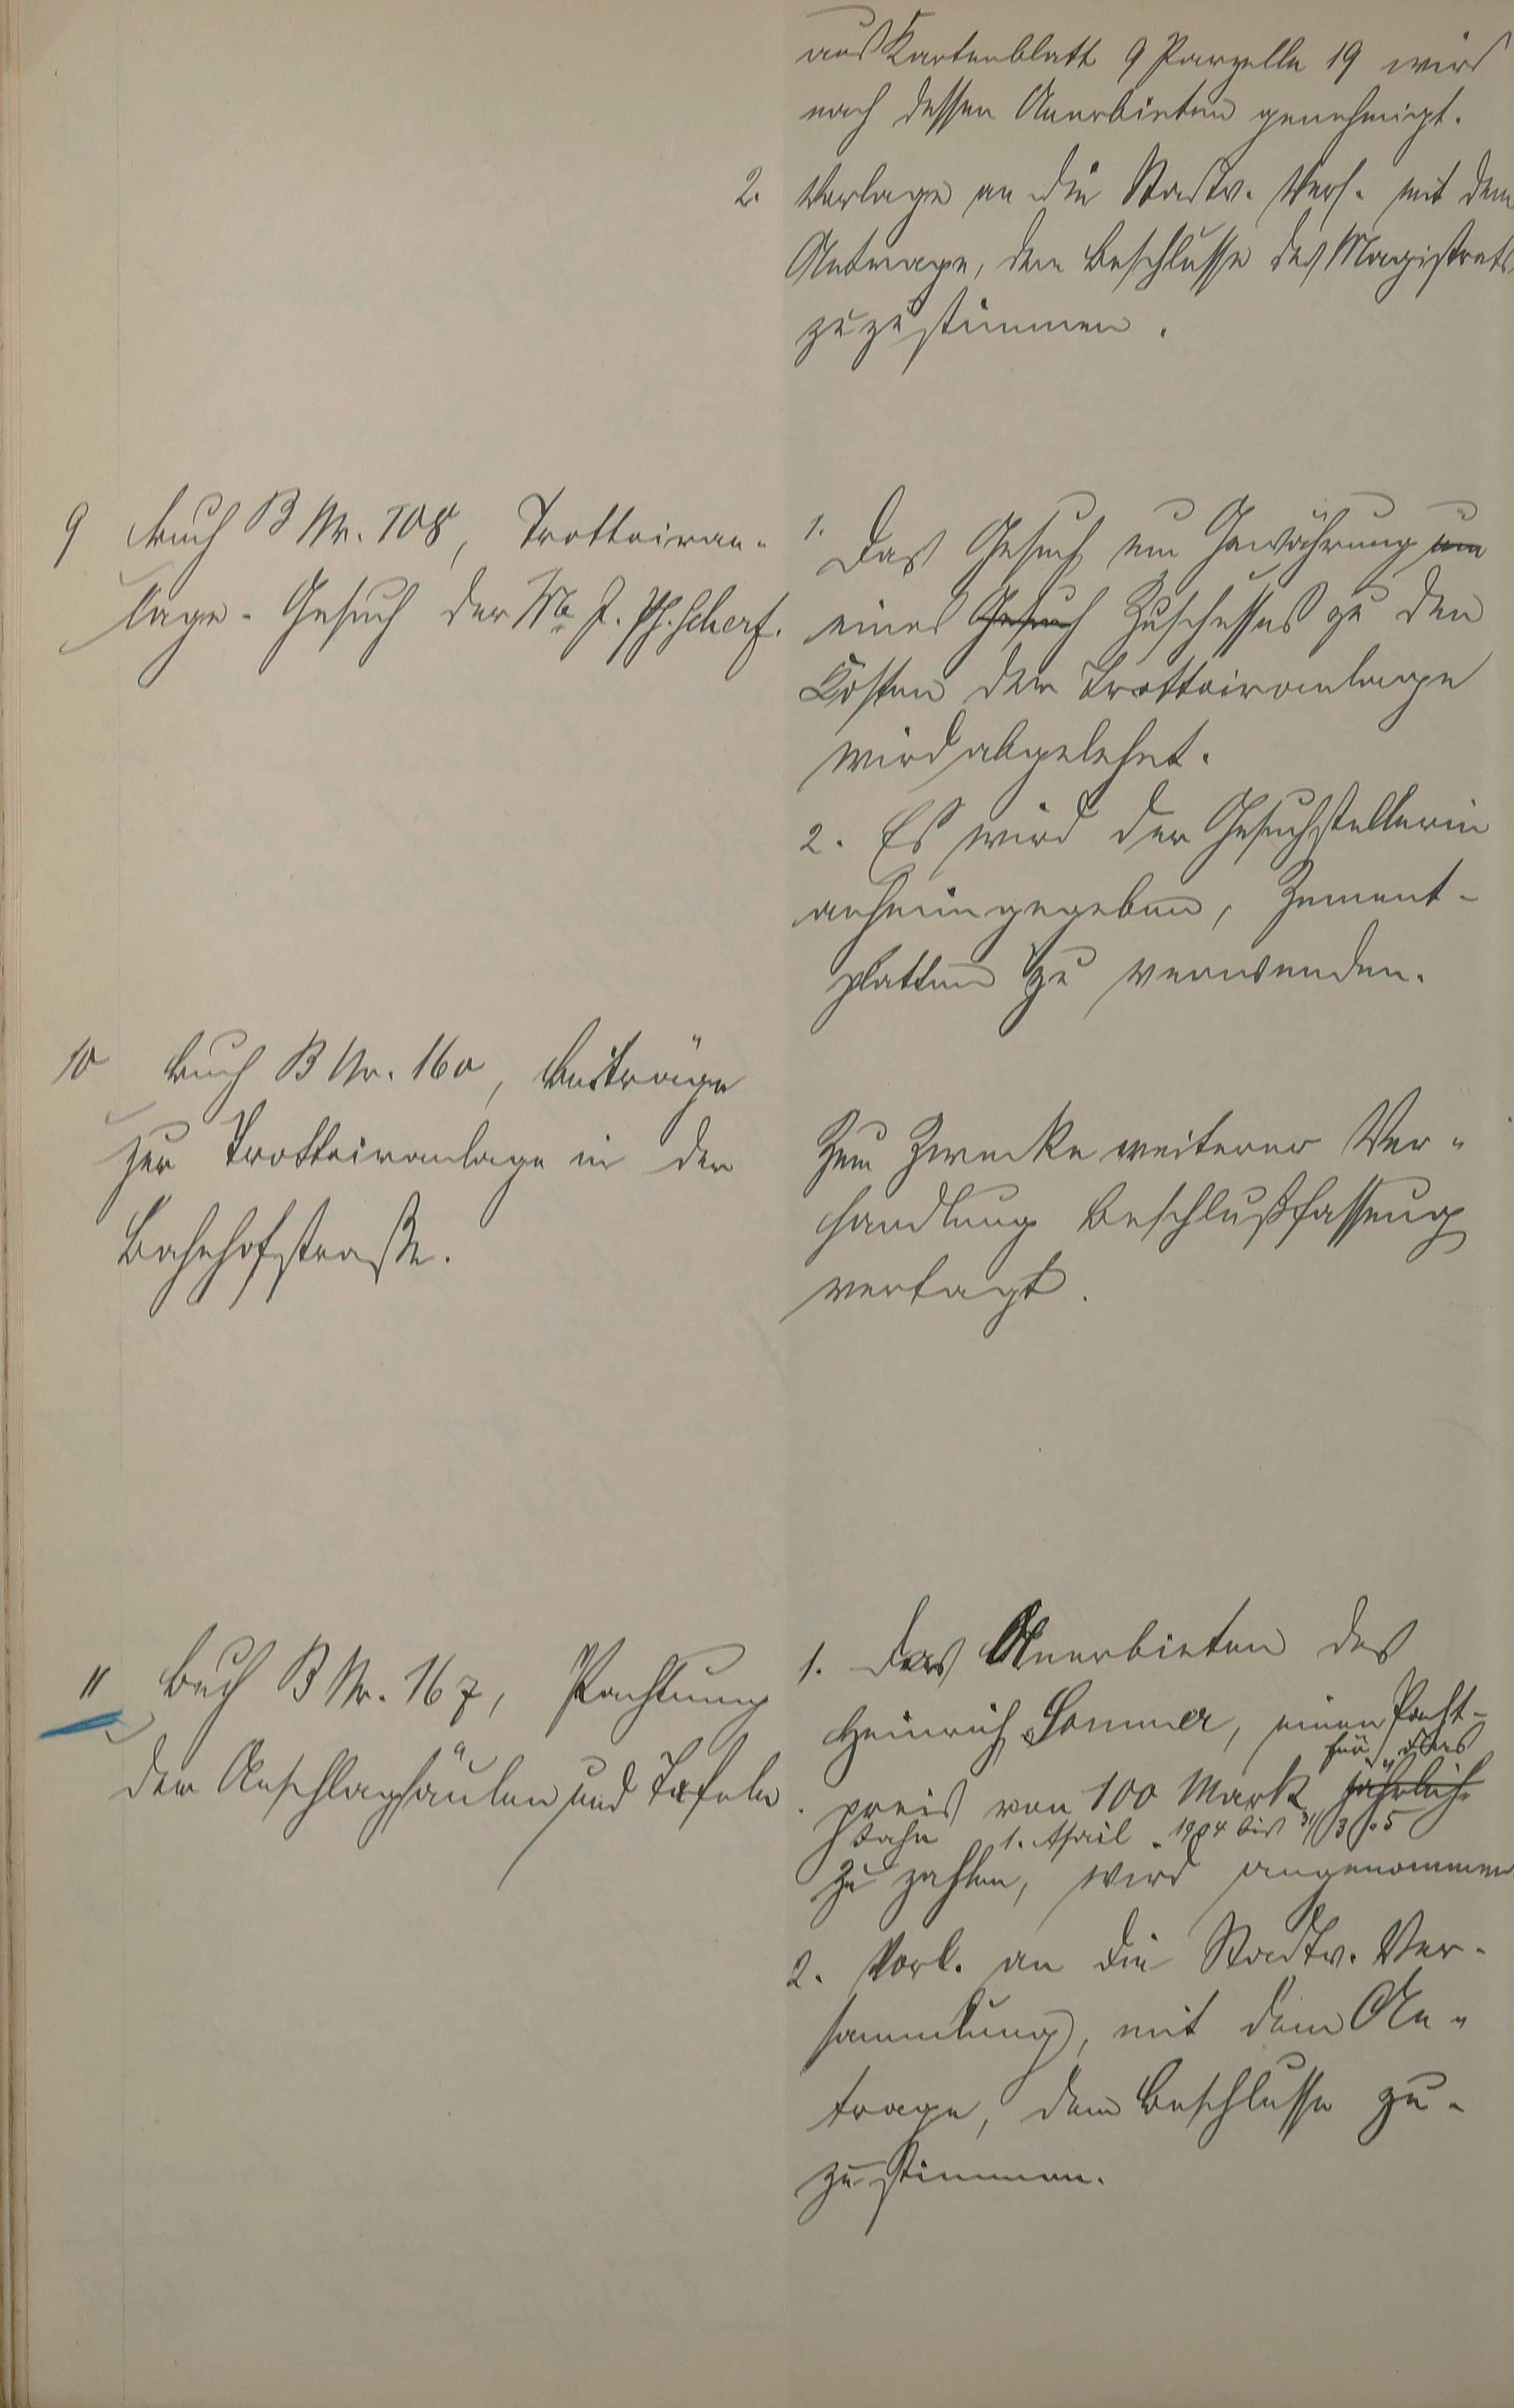 aus Kartenblatt 9 Parzelle 19 wird
nach dessen Anerbieten genehmigt.
2. Vorlage an die Stadtv. Vers. mit dem
Antrage, dem Beschlusse des Magistrats
zuzustimmen.
9 Buch B Nr. 108, Trottoiran-
lage-Gesuch der J. Ph. Scherf.
1. Das Gesuch um Gewährung um
eines Gesuch Zuschusses zu den
Kosten der Trottoiranlage
wird abgelehnt.
2. Es wird der Gesuchstellerin
anheimgegeben, Zement-
platten zu verwenden.
10 Buch B Nr. 160, Beiträge
zur Trottoiranlage in der
Bahnhofstraße.
Zum Zwecke weiterer Ver-
handlung Beschlußfassung
vertagt.
11 Buch B Nr. 167, Pachtung
der Anschlagsäulen und Tafeln.
1. Das Anerbieten des
Heinrich Sommer, einen Pacht-
für das
preis von 100 Mark jährlich
Jahr 1. April 1904 bis 31/3 05
zu zahlen, wird angenommen
2. Vorl. an die Stadtv. Ver-
sammlung, mit dem An-
trage, dem Beschlusse zu-
zustimmen.